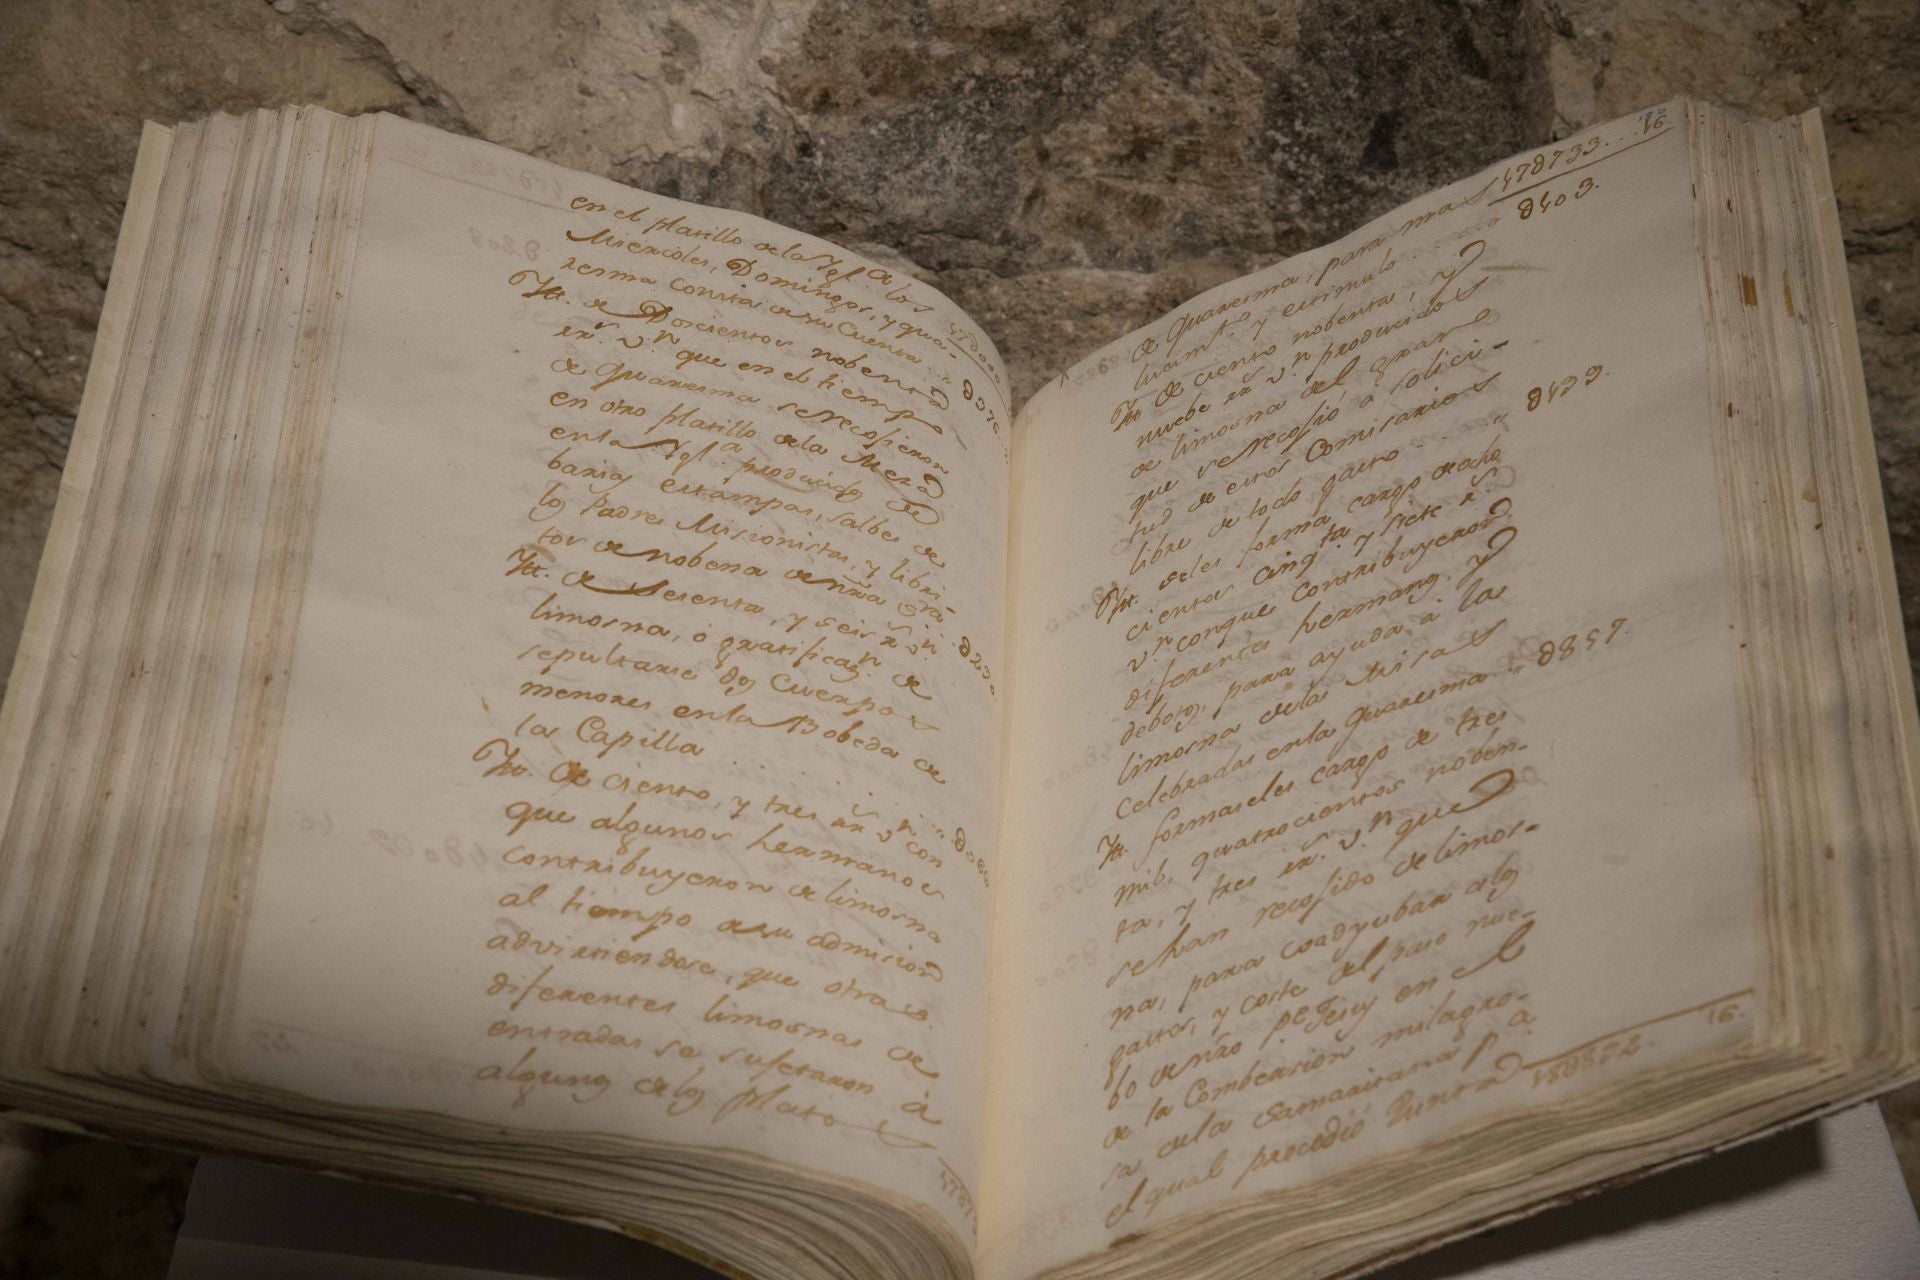 en el platillo de la Ygl.ª los
Miercoles, Domingos, y qua-
resma consta de su Cuenta
Ytt. de Doscientos nobenta
rr.s v.n que en el tiempo
de quaresma se recosieron
en otro platillo de la Mesa
en la Ygl.ª producido de
barias estampas, salbes de
los Padres Misionistas, y libri-
tos de nobena de nřa Sra
Ytt. de Sesenta, y seis rr.s v.n
limosna, ó gratificaz.n de
sepultarse dos Cuerpos
menores en la Bobeda de
la Capilla
Ytt. de ciento, y tres rr.s v.n con
que algunos hermanos
contribuyeron de limosna
al tiempo de su admision
advirtiendose, que otras
diferentes limosnas de
entradas se sujetaron à
algunos de los plato
178733... 16
de quaresma, para mas
lucim.to y estimulo
8403.
Ytt. de ciento nobenta, y
nuebe rr.s v.n producidos
de limosna del grano
que se recosió a solici-
tud de estos Comisarios
libre de todo gasto
8199.
Ytt. seles forma cargo de ocho
cientos cinq.ta y siete rr.s
v.n conque contribuyeron
diferentes hermanos. y
debotos, para ayuda, à la
limosna de las Misas
celebradas en la quaresma
8857.
Ytt. formaseles cargo de tres
mil, quatrocientos noben-
ta, y tres rr.s v.n que
se han recosido de limos-
na, para coadyubar à los
gastos, y coste del paso nue-
bo de nřo P.e Jesus en el
de la Combersion milagro-
sa de la Samaritana p.ª
el qual precedió Punta
188872. 16.